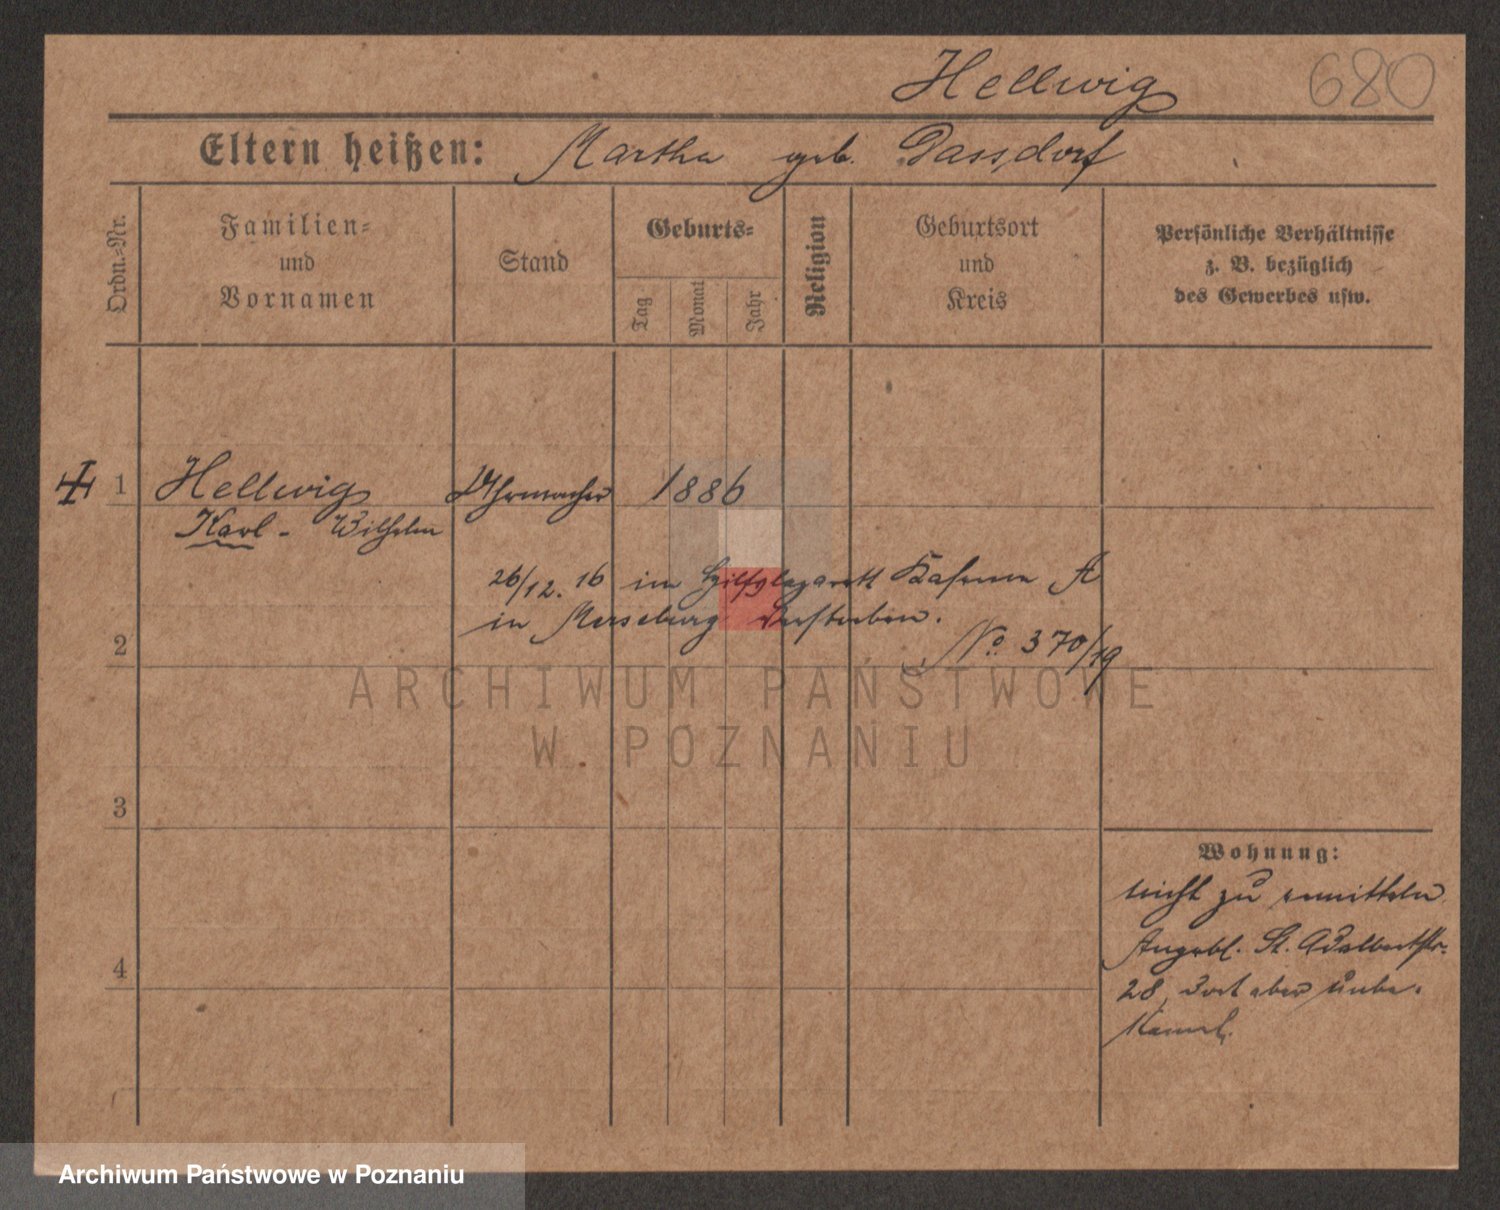 Hellwig 680
Eltern heißen: Martha geb. Dassdorf
Ordn.=Nr.
Familien=
und
Vornamen
Stand
Geburts=
Tag
Monat
Jahr
Religion
Geburtsort
und
Kreis
Persönliche Verhältnisse
z. B. bezüglich
des Gewerbes usw.
1 Hellwig Uhrmacher 1886
Karl - Wilhelm
26/12. 16 im Hilfslazarett Kaserne A
in Merseburg verstorben.
No 370/19
2
ARCHIWUM PAŃSTWOWE
W POZNANIU
3
Wohnung:
nicht zu ermitteln
Angebl. St. Adalbertstr.
28, dort aber unbe-
kannt.
4
Archiwum Państwowe w Poznaniu